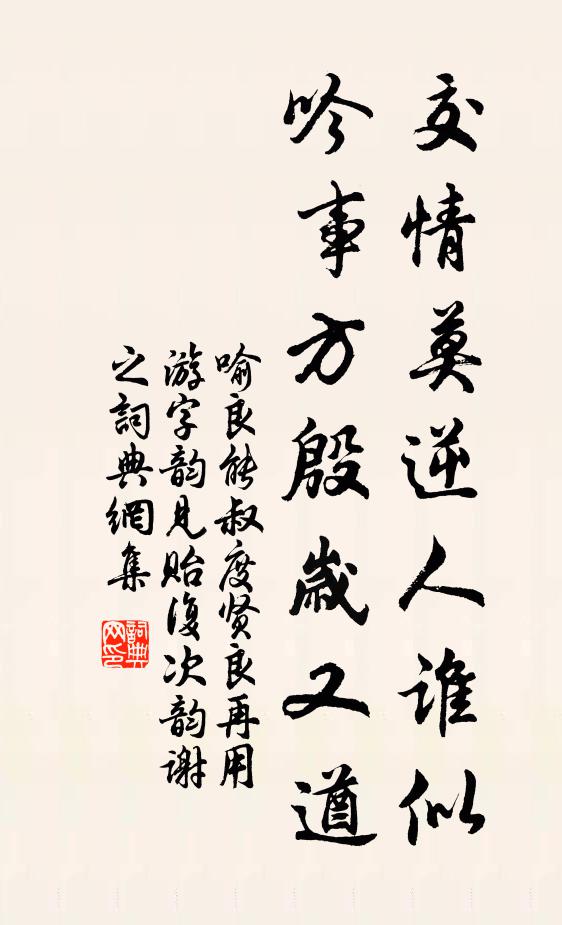 交情莫逆人谁似
吟事方殷歲又遒
喻良能叔度贤良再用
游字韵見貽復次韵谢
之詞典網集
詞典
网印